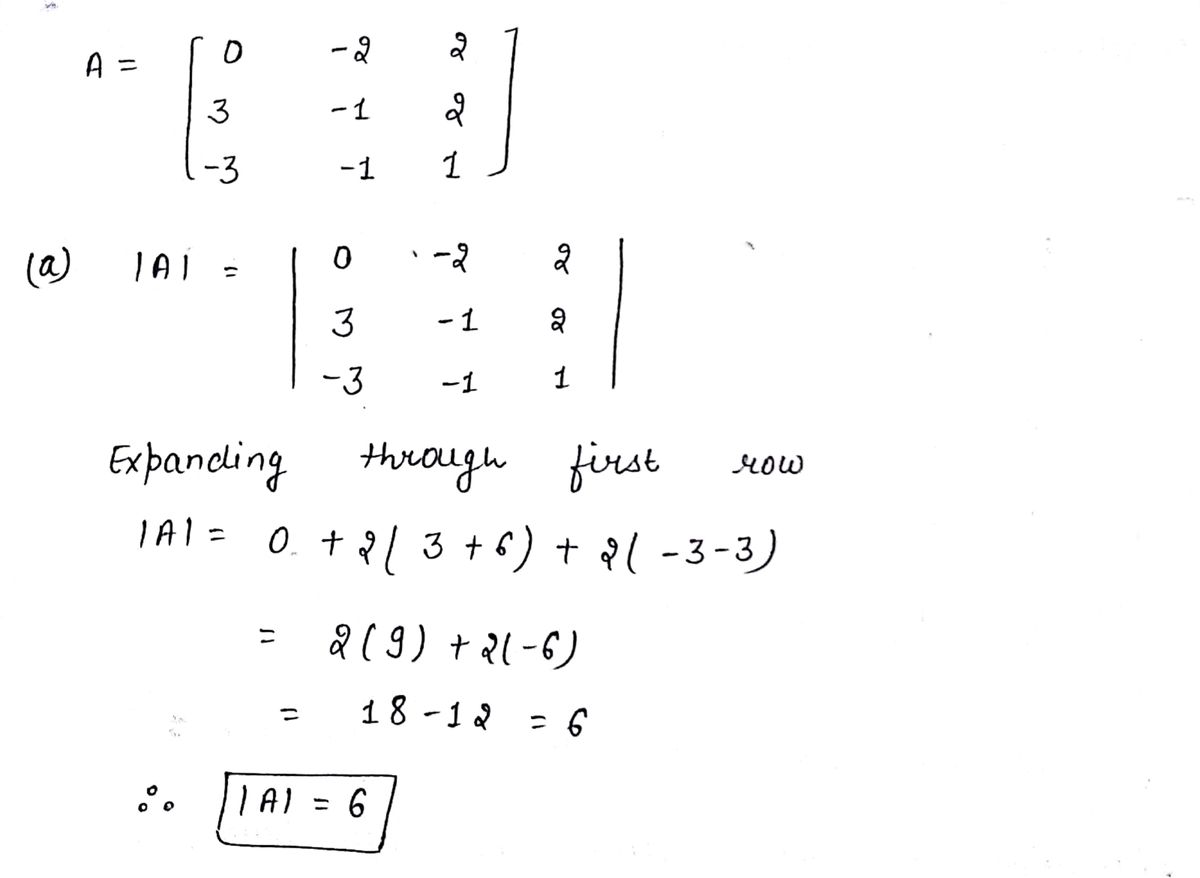 A = [ 0 -2 2
3 -1 2
-3 -1 1 ]
(a) |A| = | 0 -2 2 |
3 -1 2
-3 -1 1
Expanding through first row
|A| = 0 + 2( 3 + 6) + 2( -3-3)
= 2(9) + 2(-6)
= 18 -12 = 6
∴ |A| = 6